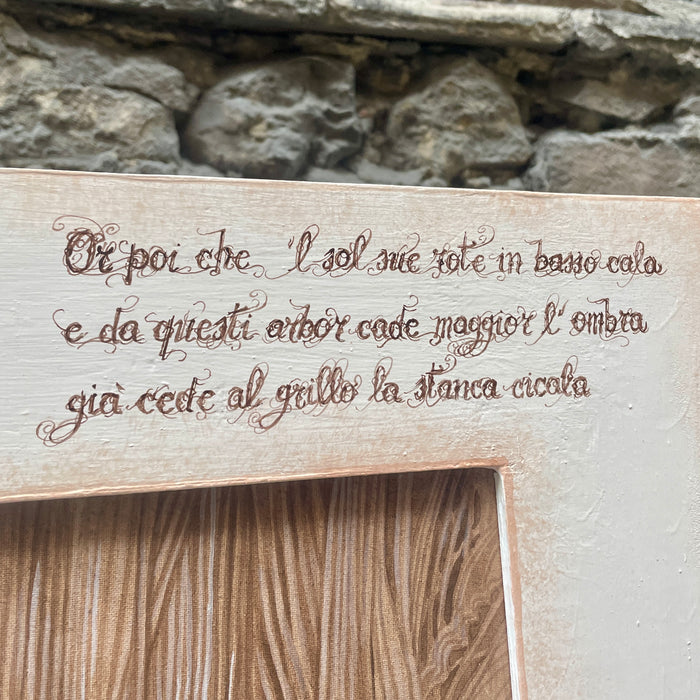 Or poi che 'l sol sue rote in basso cala
e da questi arbor cade maggior l'ombra
già cede al grillo la stanca cicala